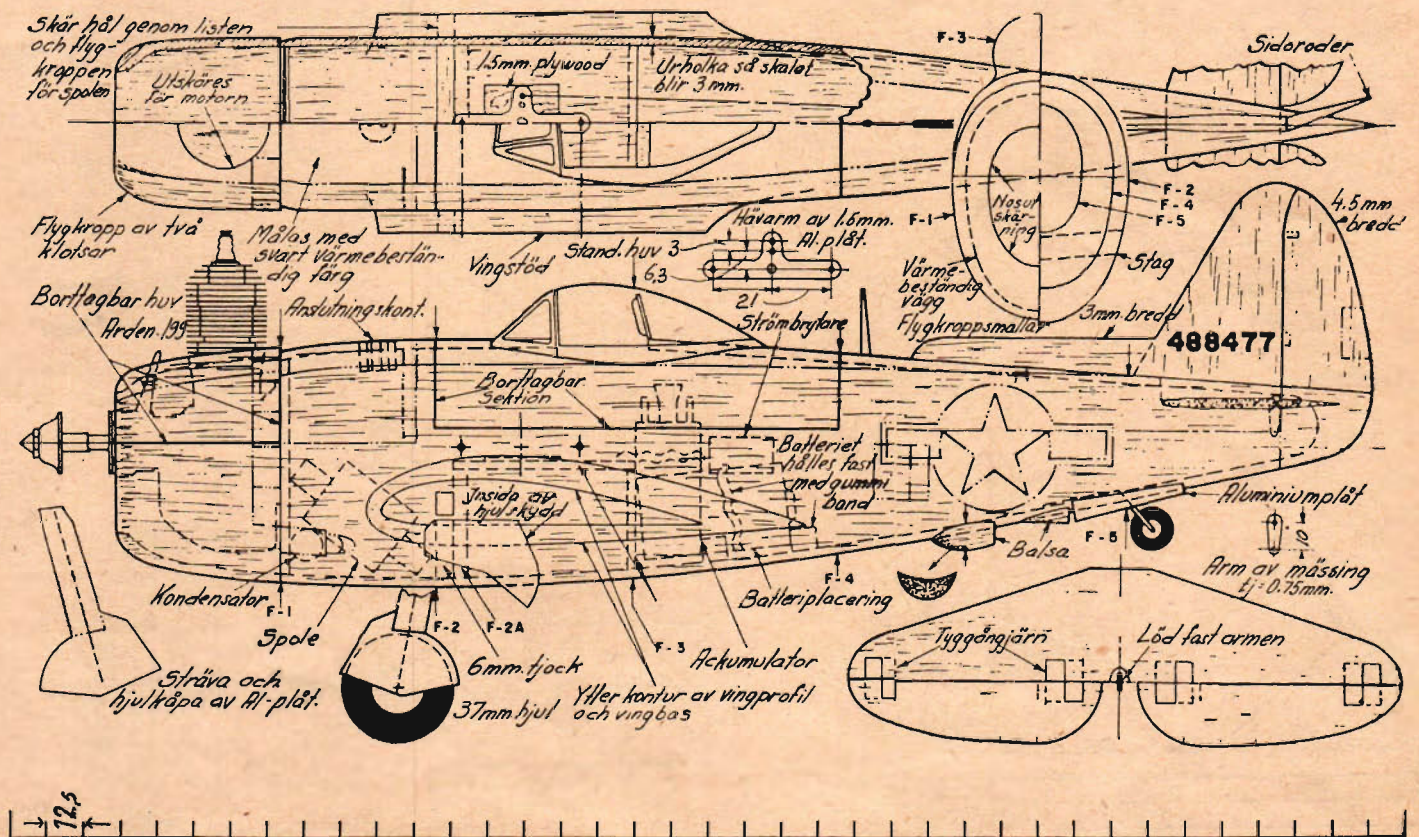 Skär hål genom listen
och flyg-
kroppen
för spolen
Utskäres
för motorn
1.5mm. plywood
Urholka så skalet
blir 3 mm.
F-3
Sidoroder
Flygkropp av två
klotsar
Målas med
svart värmebestän-
dig färg
Vingstöd
Stand. huv
3
6,3
21
Hävarm av 1.6mm.
Al. plåt.
F-1
Nosut
skär-
ning
F-2
F-4
F-5
Stag
Värme-
beständig
vägg
Flygkroppsmallar
4.5 mm
bredd
3mm. bredd
Borttagbar huv
Arden .199
Anslutningskont.
Strömbrytare
488477
Borttagbar
Sektion
Batteriet
hålles fast
med gummi
band
Insida av
hjulskydd
Aluminiumplåt
F-5
Balsa
10
Arm av mässing
tj = 0.75mm.
Kondensator
F-1
Spole
F-2
F-2A
F-3
F-4
Batteriplacering
Ackumulator
6mm. tjock
37mm. hjul
Ytter kontur av vingprofil
och vingbas
Sträva och
hjulkåpa av Al-plåt.
Tyggångjärn
Löd fast armen
12,5